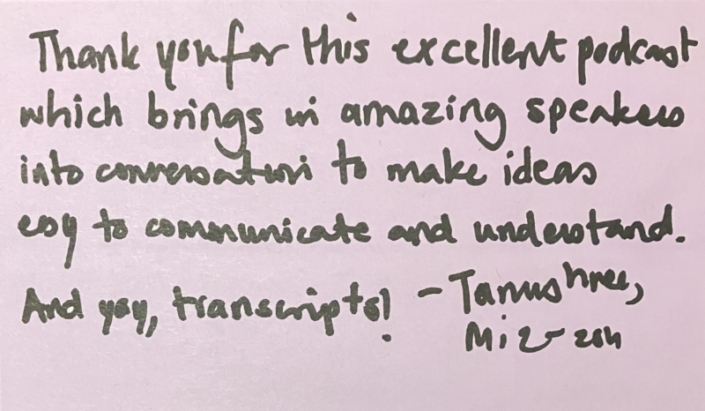 Thank you for this excellent podcast
which brings in amazing speakers
into conversation to make ideas
easy to communicate and understand.
And yay, transcripts! - Tanushree,